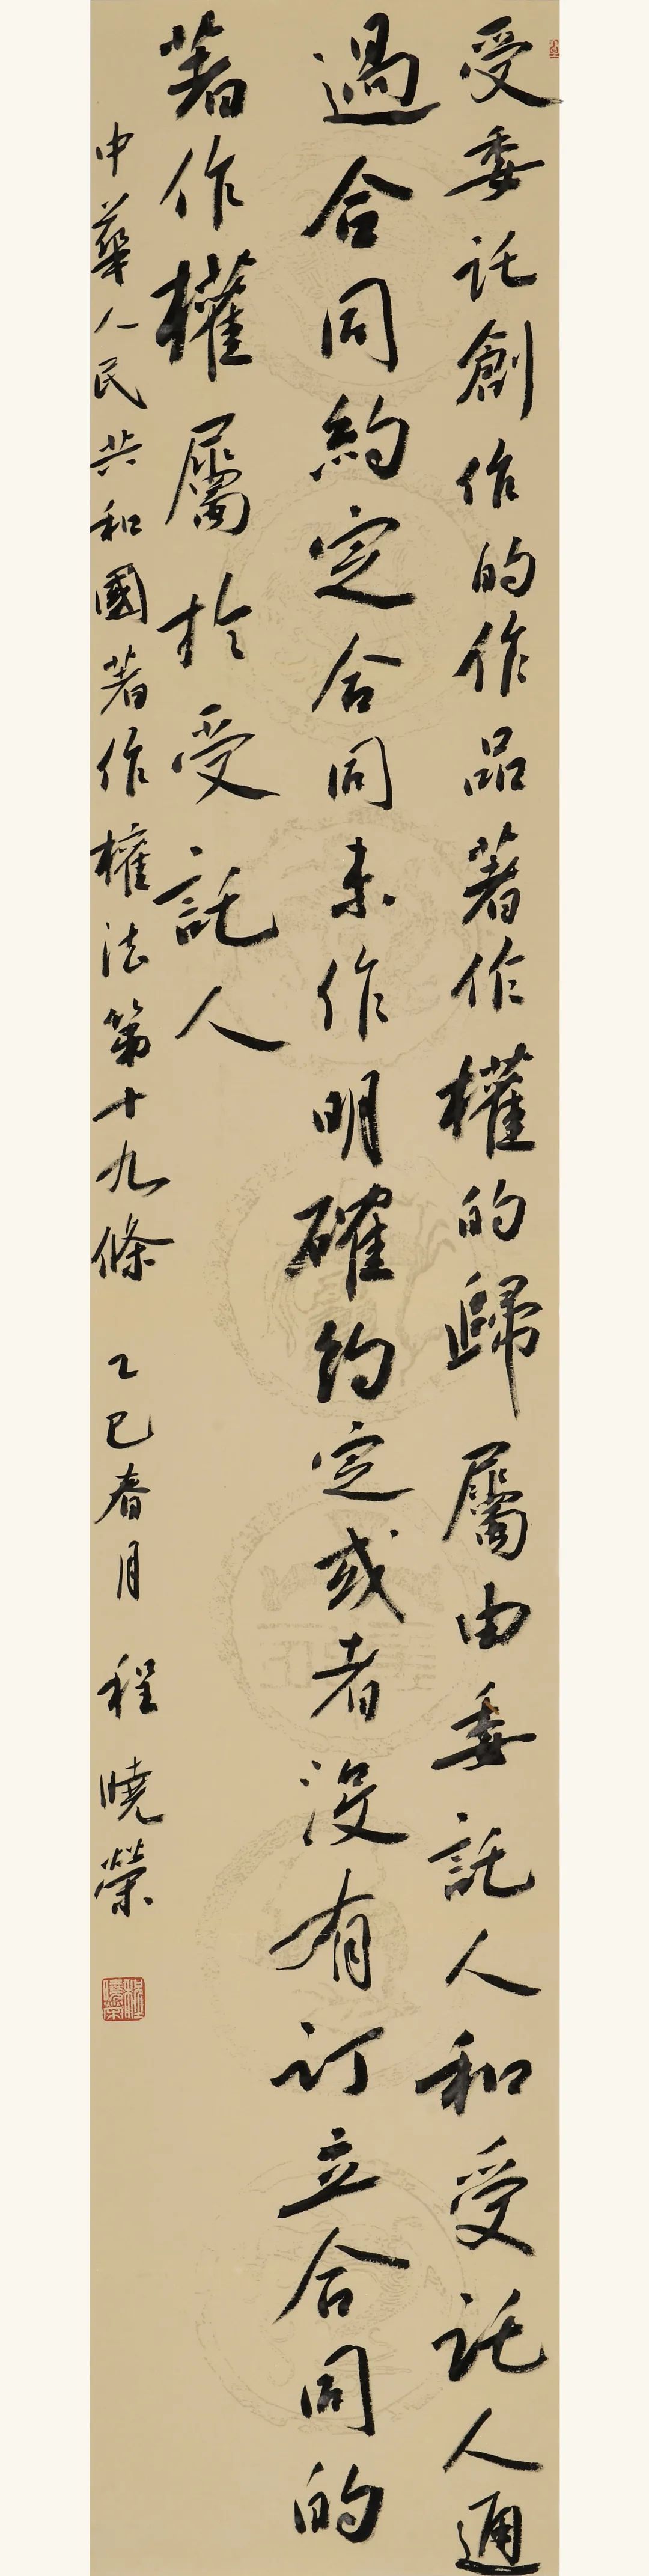 受委託創作的作品著作權的歸屬由委託人和受託人通
過合同約定合同未作明確約定或者沒有訂立合同的
著作權屬於受託人
中華人民共和國著作權法第十九條 乙巳春月 程曉榮
程曉榮